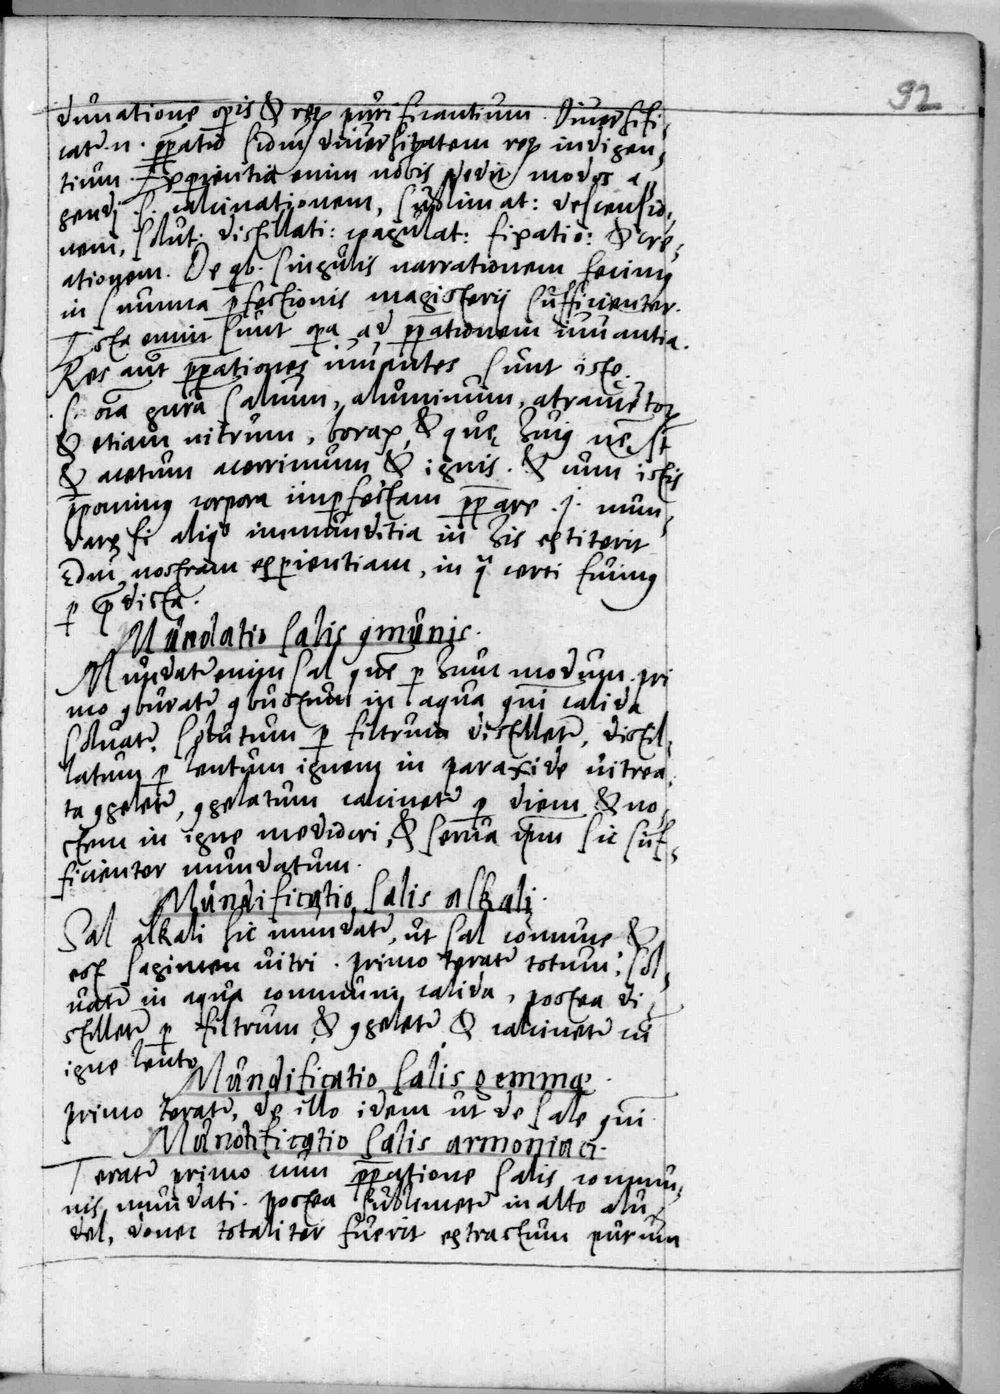 92
dunatione opis & reȝ purificantium. Diversifi-
catr .n. ppatio sidm diversitatem reȝ indigen-
tium. Experientia enim nobis dedit modos a-
gendi .s. calcinationem, sublimat: descensio-
nem, solut: distillati: coagulat: fixatio: & cre-
ationem. De qb. singulis narrationem fecimus
in summa pfectionis magisterij sufficienter.
Ista enim sunt opa ad ppationem iuvantia.
Res aut ppationes iuvantes sunt iste.
.s. oia gura salium, aluminum, atramentoȝ
& etiam vitrum, borax, & que huiq ne st
& acetum acerrimum & ignis. & cum istis
pponimus corpora impfectam ppare .i. mun-
dare si aliqd immunditia in his extiterit
sdm nostram experientiam, in q certi fuimus
p pdicta.
Mundatio salis gmunis.
Mundatr enim sal gne p hunc modum. pri
mo gburatr gbustum in aqua gni calida
solvatr. Solutum p filtrum distilletr, distil-
latum p lentum ignem in paraxide vitrea
ta ggeletr, ggelatum calcinetr p diem & no-
ctem in igne mediocri, & serva ipm sic suf-
ficienter mundatum.
Mundificatio salis alkali.
Sal alkali sic mundatr, ut sal comune &
est sagimen vitri. primo teratr totum, sol-
vatr in aqua communi calida, postea di-
stilletr p filtrum & ggeletr & calcinetr in
igne lento
Mundificatio salis gemmæ.
primo teratr, de illo idem ut de sale gni
Mundificatio salis armoniaci.
Teratr primo cum ppatione salis commu-
nis mundati. postea sublimetr in alto alu-
del, donec totaliter fuerit extractum purum